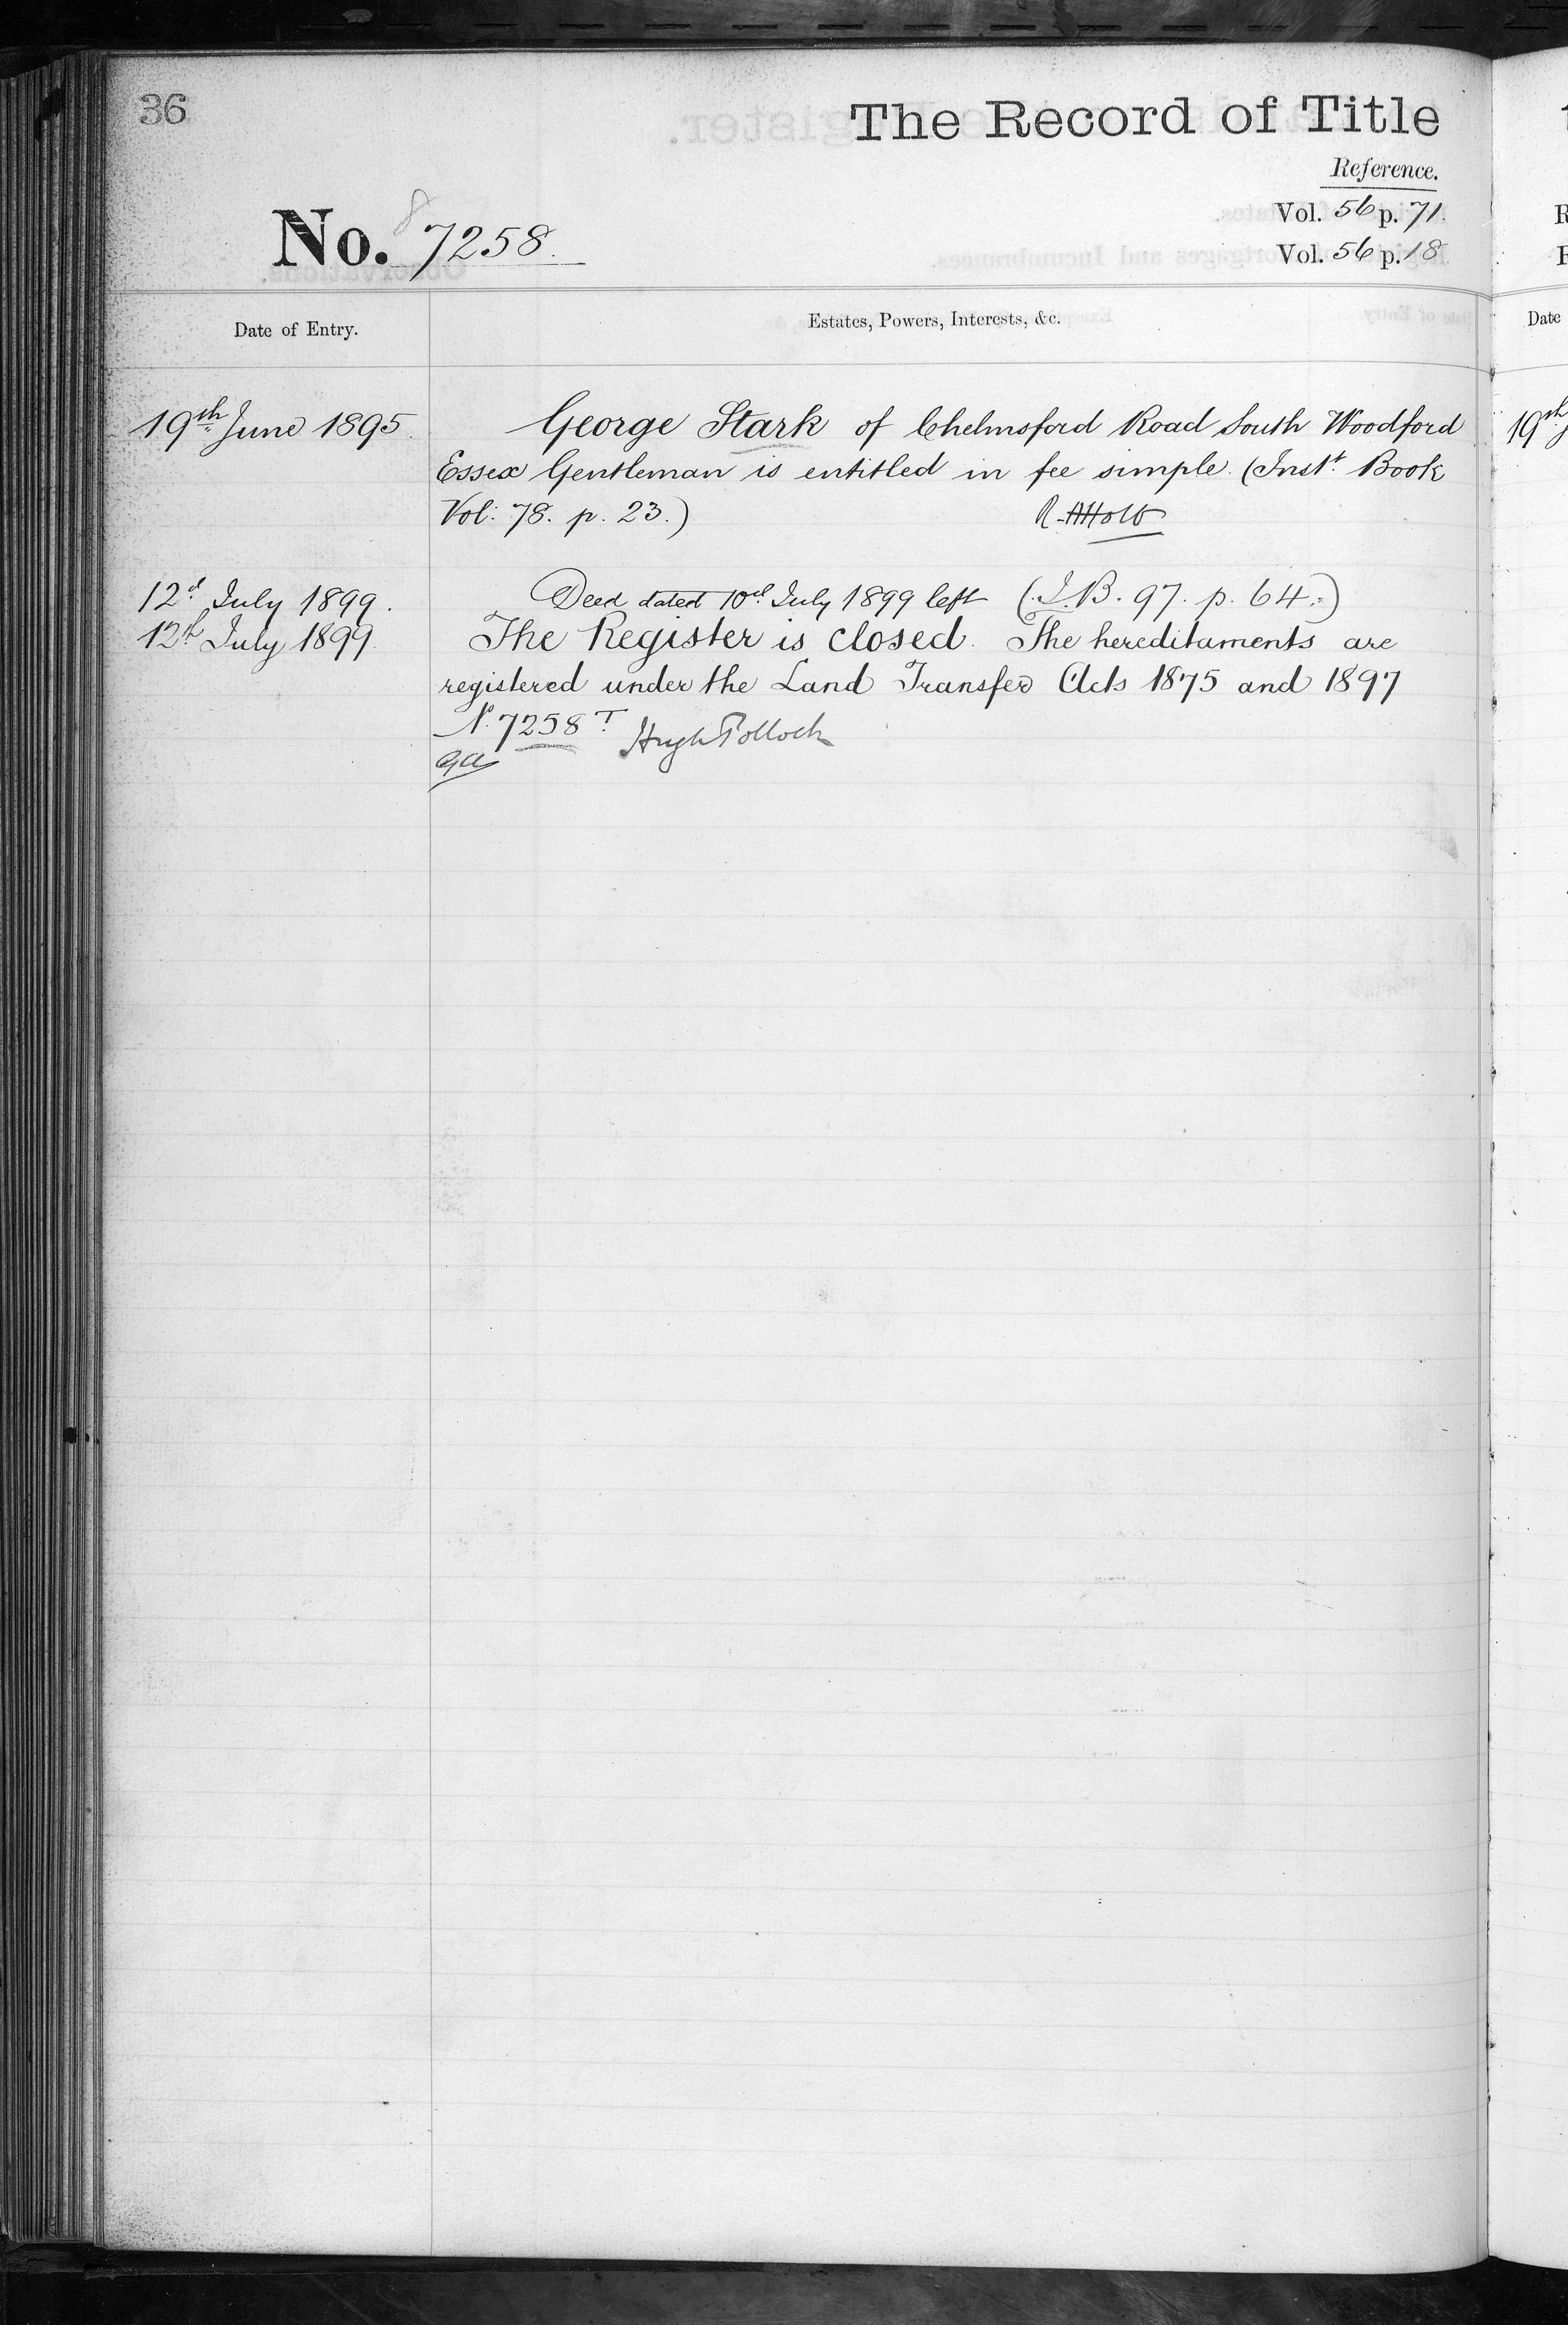 36
The Record of Title
Reference.
Vol. 56 p. 71.
No. 7258.
8
Vol. 56 p. 18
Date of Entry.
Estates, Powers, Interests, &c.
Date
19th June 1895.
George Stark of Chelmsford Road South Woodford
19th
Essex Gentleman is entitled in fee simple. (Instt. Book
Vol: 78. p. 23.)
12th July 1899.
Deed dated 10th July 1899 left (I.B. 97. p. 64.)
12th July 1899.
The Register is closed. The hereditaments are
registered under the Land Transfer Acts 1875 and 1897
No. 7258 T. Hugh Pollock